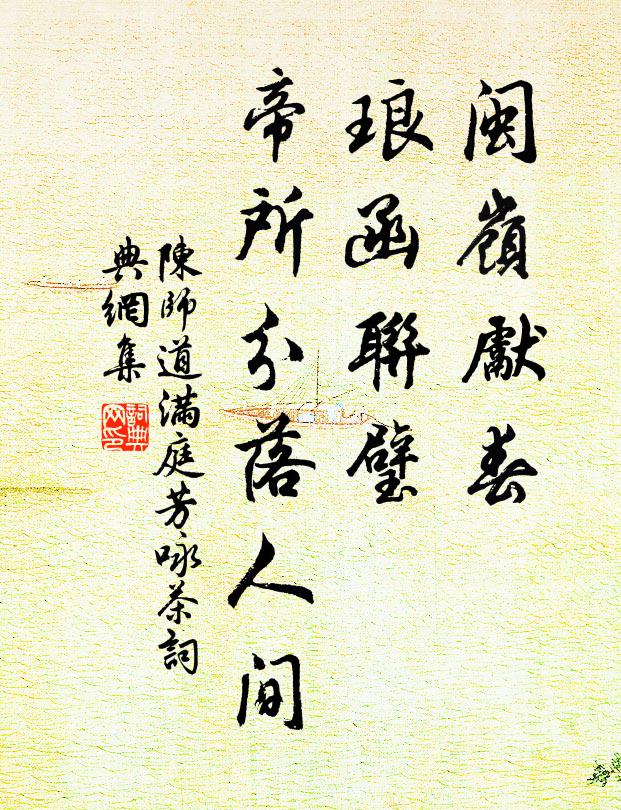 闽嶺獻春
琅函聯璧
帝所分落人间
陳師道滿庭芳咏茶詞
典網集
詞典
网印